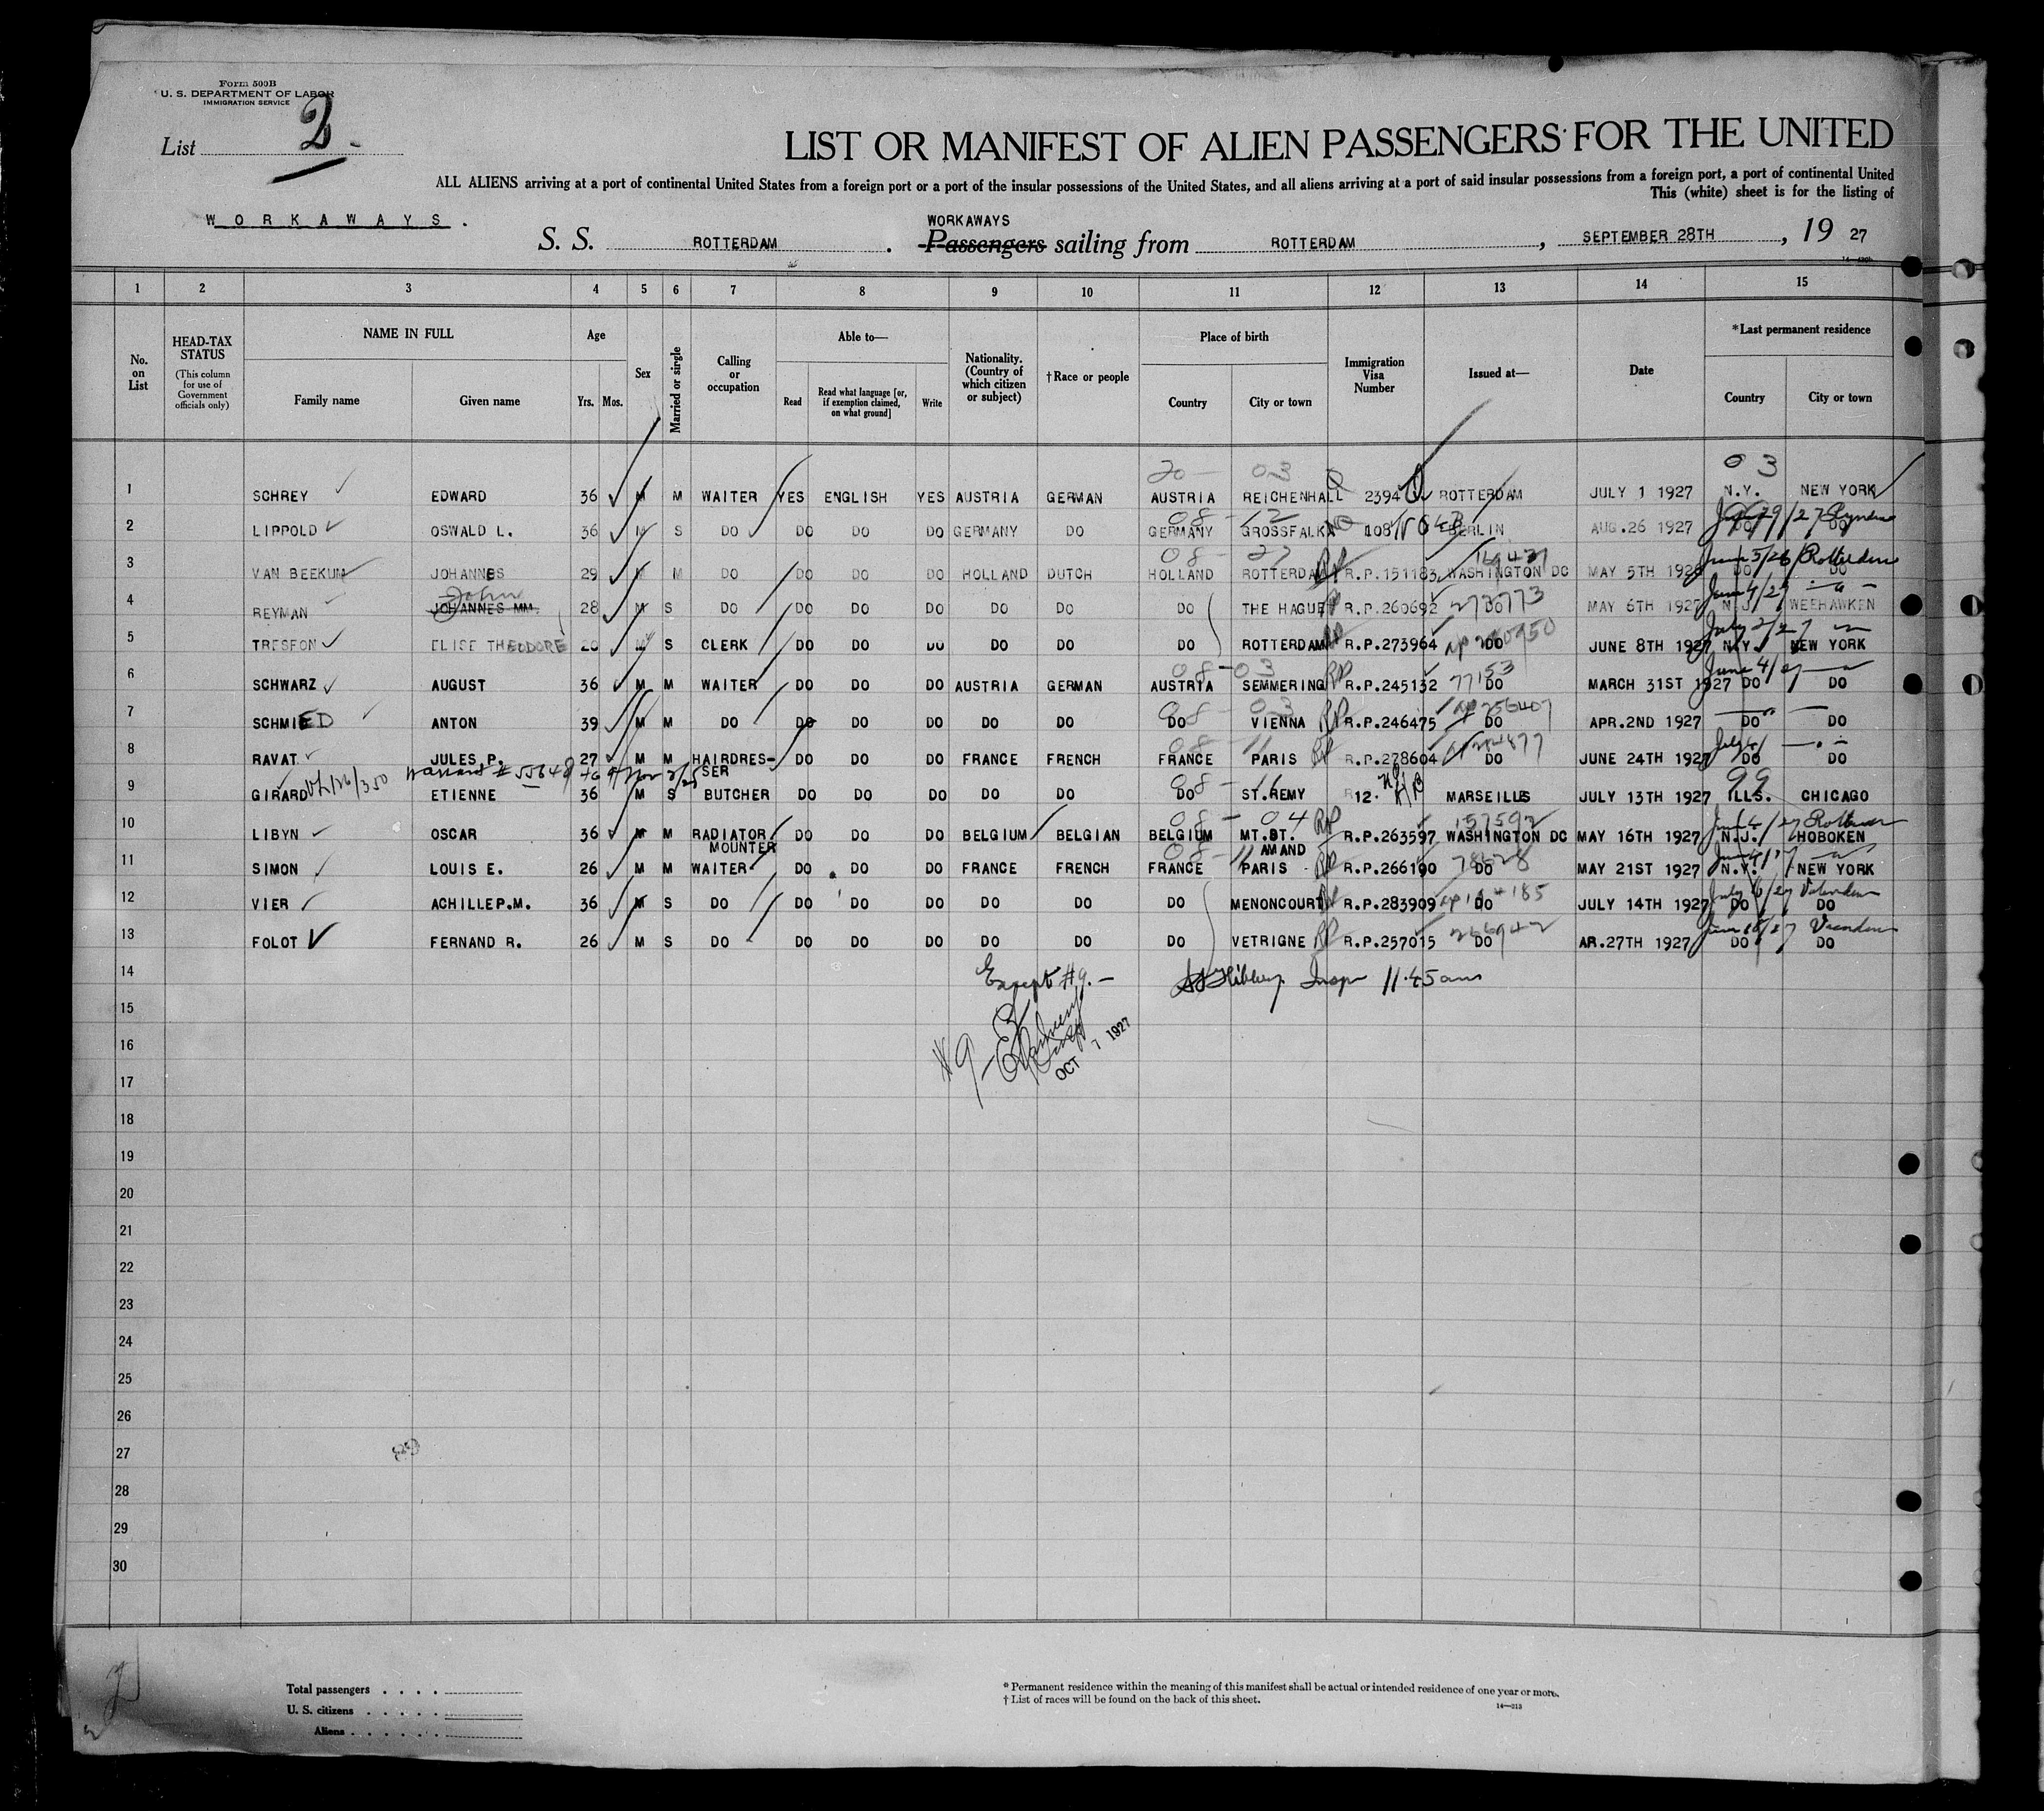 Form 500B
U. S. DEPARTMENT OF LABOR
IMMIGRATION SERVICE
List 2
LIST OR MANIFEST OF ALIEN PASSENGERS FOR THE UNITED
ALL ALIENS arriving at a port of continental United States from a foreign port or a port of the insular possessions of the United States, and all aliens arriving at a port of said insular possessions from a foreign port, a port of continental United
This (white) sheet is for the listing of
WORKAWAYS.
WORKAWAYS
S. S. ROTTERDAM . Passengers sailing from ROTTERDAM , SEPTEMBER 28TH , 19 27
1 2 3 4 5 6 7 8 9 10 11 12 13 14 15
No. on List
HEAD-TAX STATUS
(This column for use of Government officials only)
NAME IN FULL
Family name Given name
Age
Yrs. Mos.
Sex
Married or single
Calling or occupation
Able to—
Read
Read what language [or, if exemption claimed, on what ground]
Write
Nationality. (Country of which citizen or subject)
†Race or people
Place of birth
Country City or town
Immigration Visa Number
Issued at—
Date
*Last permanent residence
Country City or town
20 - 03 03
1 SCHREY EDWARD 36 M M WAITER YES ENGLISH YES AUSTRIA GERMAN AUSTRIA REICHENHALL 2394 ROTTERDAM JULY 1 1927 N.Y. NEW YORK
08 - 12
2 LIPPOLD OSWALD L. 36 M S DO DO DO DO GERMANY DO GERMANY GROSSFALKA 108 BERLIN AUG.26 1927 DO DO
08 - 27
3 VAN BEEKUM JOHANNES 29 M M DO DO DO DO HOLLAND DUTCH HOLLAND ROTTERDAM R.P.151183 WASHINGTON DC MAY 5TH 1926 DO DO
June 5/26 Rotterdam
John
4 REYMAN JOHANNES MM. 28 M S DO DO DO DO DO DO DO THE HAGUE R.P.260692 DO MAY 6TH 1927 N.J. WEEHAWKEN
273773
5 TRESFON ELISE THEODORE 28 M S CLERK DO DO DO DO DO DO ROTTERDAM R.P.273964 DO JUNE 8TH 1927 N.Y. NEW YORK
08 - 03
6 SCHWARZ AUGUST 36 M M WAITER DO DO DO AUSTRIA GERMAN AUSTRIA SEMMERING R.P.245132 DO MARCH 31ST 1927 DO DO
77153
7 SCHMIED ANTON 39 M M DO DO DO DO DO DO DO VIENNA R.P.246475 DO APR.2ND 1927 DO DO
08 - 11
8 RAVAT JULES P. 27 M M HAIRDRES- DO DO DO FRANCE FRENCH FRANCE PARIS R.P.278604 DO JUNE 24TH 1927 DO DO
SER
Warrant # 55648
08 - 11 99
9 GIRARD ETIENNE 36 M S BUTCHER DO DO DO DO DO DO ST.REMY 12. MARSEILLE JULY 13TH 1927 ILLS. CHICAGO
08 - 04 157592
10 LIBYN OSCAR 36 M M RADIATOR DO DO DO BELGIUM BELGIAN BELGIUM MT.ST. R.P.263597 WASHINGTON DC MAY 16TH 1927 N.J. HOBOKEN
MOUNTER AMAND
08 - 11
11 SIMON LOUIS E. 26 M M WAITER DO DO DO FRANCE FRENCH FRANCE PARIS R.P.266190 DO MAY 21ST 1927 N.Y. NEW YORK
12 VIER ACHILLE P.M. 36 M S DO DO DO DO DO DO DO MENONCOURT R.P.283909 DO JULY 14TH 1927 DO DO
13 FOLOT FERNAND R. 26 M S DO DO DO DO DO DO DO VETRIGNE R.P.257015 DO AR.27TH 1927 DO DO
14
Except #9. — Insp 11.45 am
15
16
#9 OCT 7 1927
17
18
19
20
21
22
23
24
25
26
27
28
29
30
Total passengers
U. S. citizens
Aliens
* Permanent residence within the meaning of this manifest shall be actual or intended residence of one year or more.
† List of races will be found on the back of this sheet.
14—313